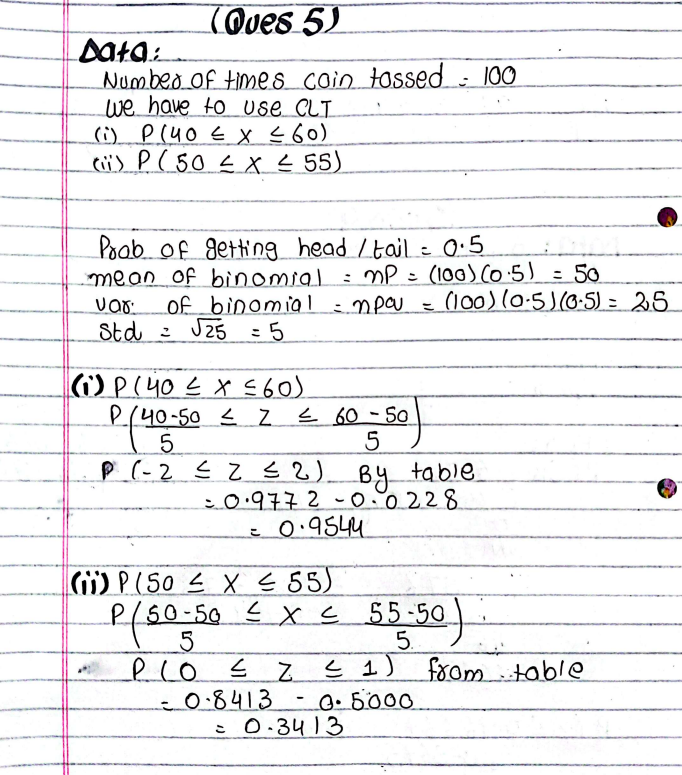 (Ques 5)
Data:
Number of times coin tossed = 100
we have to use CLT
(i) P(40 ≤ x ≤ 60)
(ii) P( 50 ≤ x ≤ 55)
Prob of getting head / tail = 0.5
mean of binomial = np = (100)(0.5) = 50
var. of binomial = npq = (100)(0.5)(0.5) = 25
Std = √25 = 5
(i) P(40 ≤ x ≤ 60)
P((40-50)/5 ≤ z ≤ (60-50)/5)
P (-2 ≤ z ≤ 2) By table
= 0.9772 - 0.0228
= 0.9544
(ii) P(50 ≤ x ≤ 55)
P((50-50)/5 ≤ x ≤ (55-50)/5)
P(0 ≤ z ≤ 1) from table
= 0.8413 - 0.5000
= 0.3413